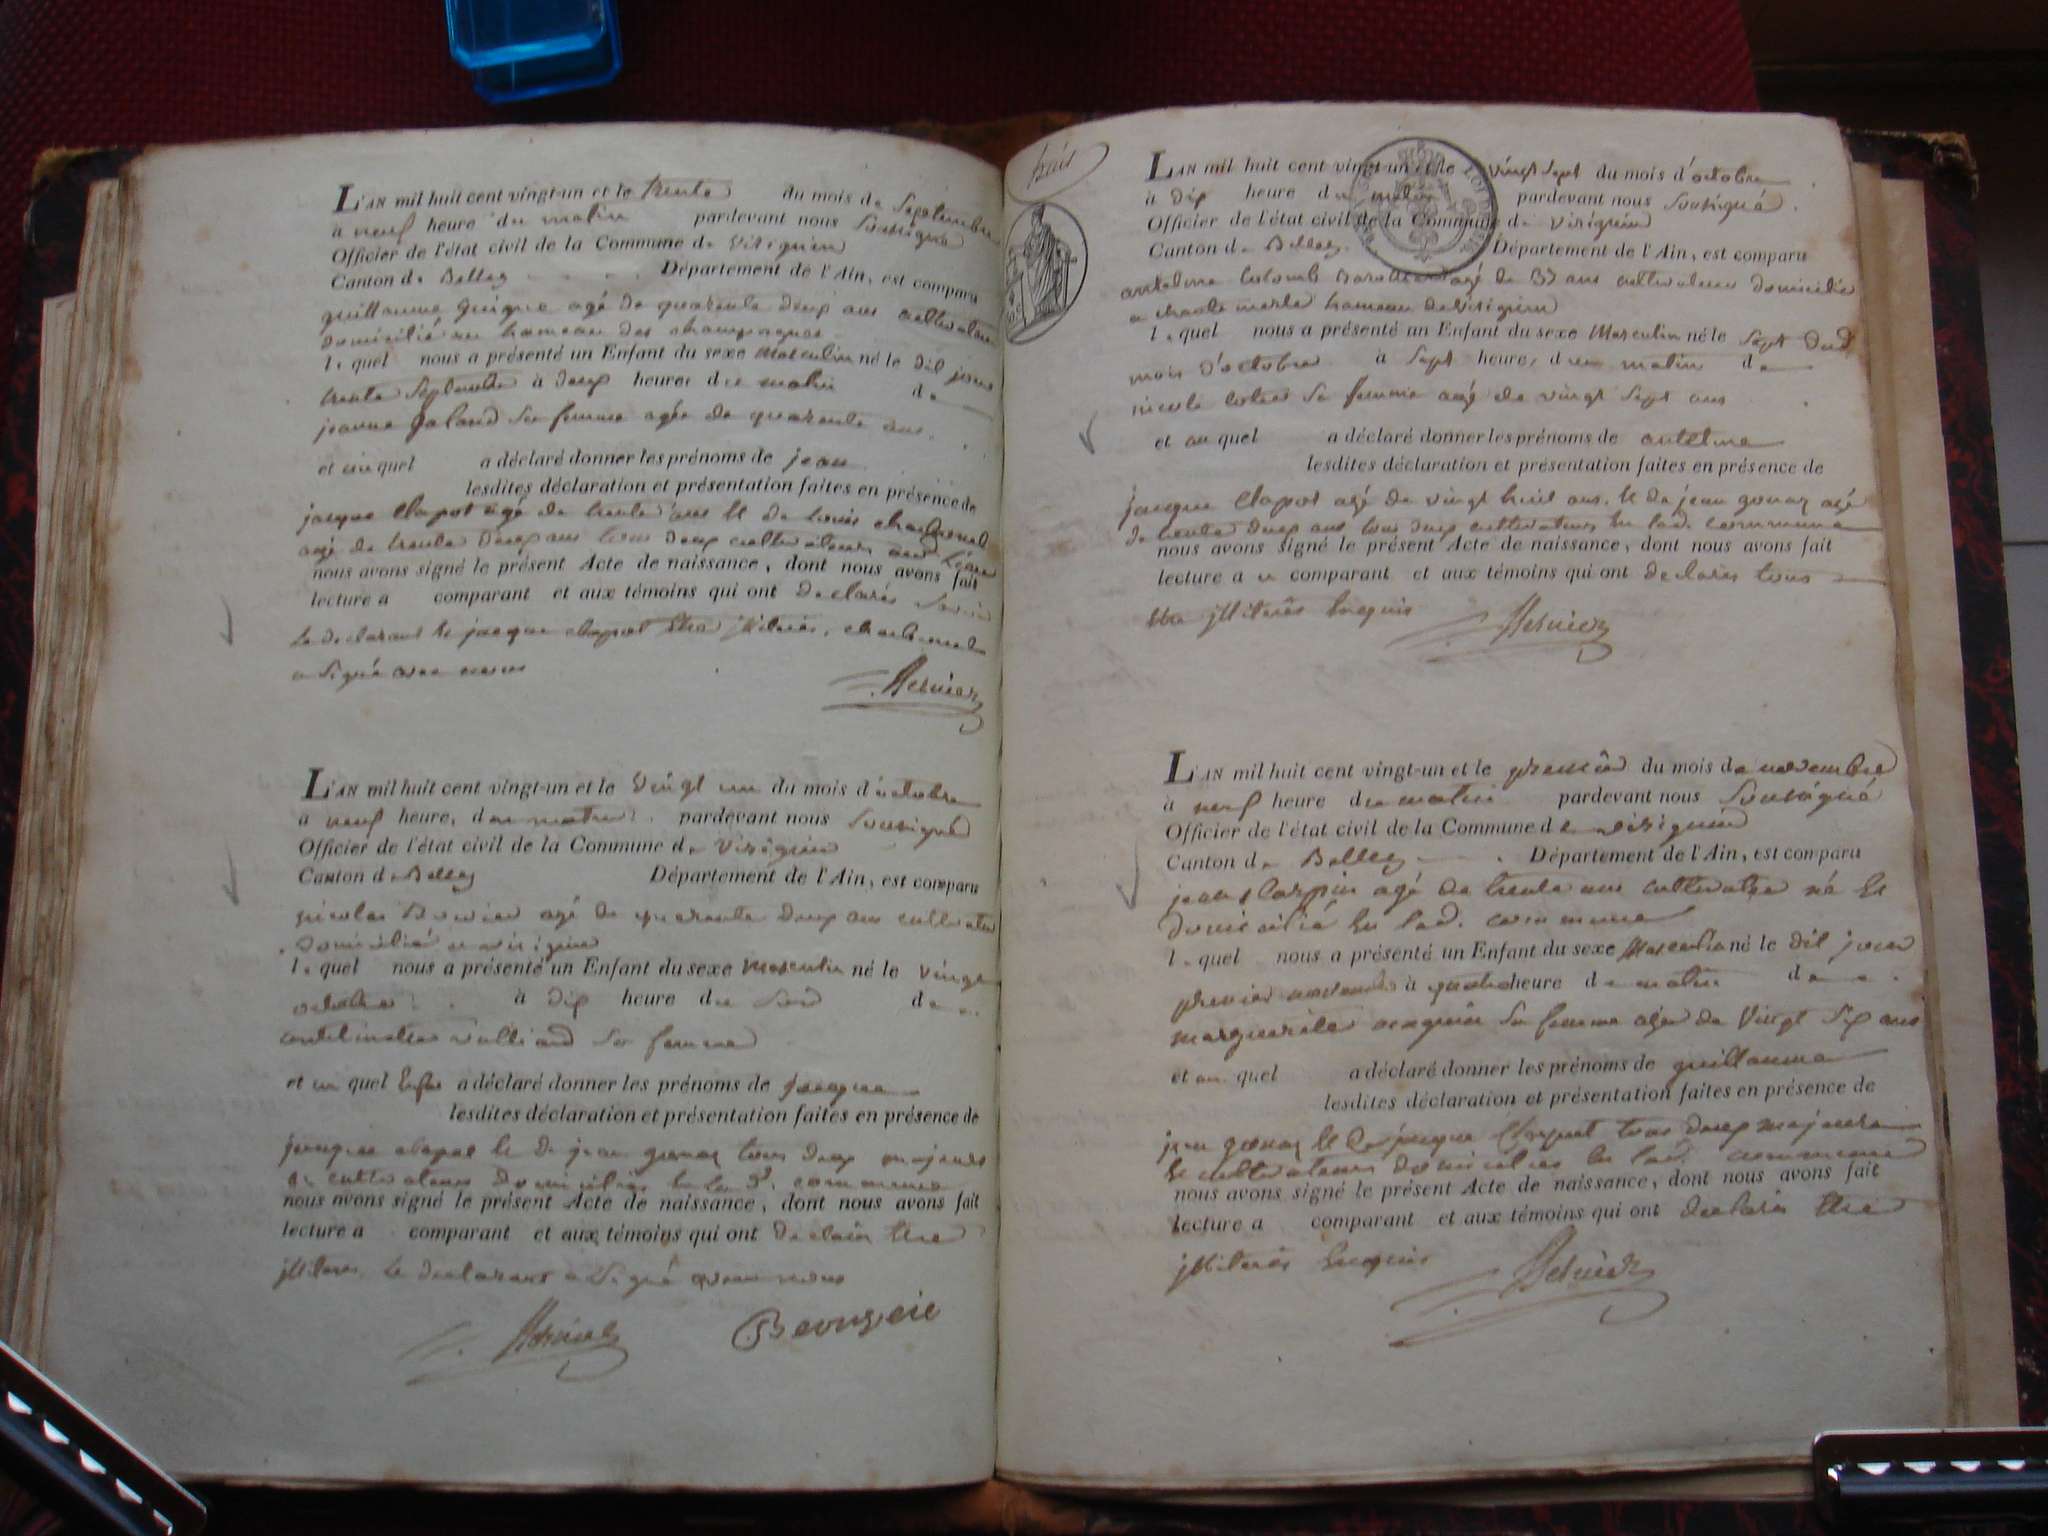 L'AN mil huit cent vingt-un et le trente du mois de Septembre
à neuf heure du matin pardevant nous Soussigné
Officier de l'état civil de la Commune de Virignin
Canton de Belley Département de l'Ain, est comparu
guillaume guigue agé de quarante deux ans cultivateur
domicilié au hameau des champagnes
lequel nous a présenté un Enfant du sexe Masculin né le dit jour
trente Septembre à deux heures du matin de
jeanne jaland sa femme agée de quarante ans.
et au quel a déclaré donner les prénoms de jean
lesdites déclaration et présentation faites en présence de
jacque Clapot agé de trente ans & de Louis charbonnel
agé de trente deux ans tous deux cultivateurs
nous avons signé le présent Acte de naissance, dont nous avons fait
lecture a comparant et aux témoins qui ont declarés Savoir
Le declarant & jacque clapot être illiterés, charbonnel
a Signé avec nous
L'AN mil huit cent vingt-un et le vingt un du mois d'octobre
à neuf heure, du matin pardevant nous Soussigné
Officier de l'état civil de la Commune de Virignin
Canton de Belley Département de l'Ain, est comparu
nicolas agé de quarante deux ans cultivateur
domicilié a virignin
lequel nous a présenté un Enfant du sexe Masculin né le vingt
octobre à dix heure du Soir de
sa femme
et au quel Enfant a déclaré donner les prénoms de jacque
lesdites déclaration et présentation faites en présence de
jacque clapot & de jean gonaz tous deux majeurs
& cultivateurs domiciliés en lad. commune
nous avons signé le présent Acte de naissance, dont nous avons fait
lecture a comparant et aux témoins qui ont declarés être
illiterés. le declarant a Signé avec nous
huit
L'AN mil huit cent vingt-un et le vingt Sept du mois d'octobre
à dix heure du matin pardevant nous Soussigné
Officier de l'état civil de la Commune de Virignin
Canton de Belley Département de l'Ain, est comparu
antelme Colomb agé de 37 ans cultivateur domicilié
a hameau de virignin
lequel nous a présenté un Enfant du sexe Masculin né le Sept dud.
mois d'octobre à Sept heure, du matin de
nicole sa femme agé de vingt Sept ans
et au quel a déclaré donner les prénoms de antelme
lesdites déclaration et présentation faites en présence de
jacque Clapot agé de vingt huit ans. & de jean gonaz agé
de trente deux ans tous deux cultivateurs en lad. commune
nous avons signé le présent Acte de naissance, dont nous avons fait
lecture a u comparant et aux témoins qui ont declarés tous
être illiterés Enquis
L'AN mil huit cent vingt-un et le premier du mois de novembre
à neuf heure du matin pardevant nous Soussigné
Officier de l'état civil de la Commune de virignin
Canton de Belley Département de l'Ain, est comparu
jean Carpin agé de trente ans cultivateur né &
domicilié En lad. commune
lequel nous a présenté un Enfant du sexe Masculin né le dit jour
premier novembre à quatre heure du matin de
marguerite sa femme agée de Vingt Six ans
et au quel a déclaré donner les prénoms de guillaume
lesdites déclaration et présentation faites en présence de
jean gonaz & de jacque Clapot tous deux majeurs
& cultivateurs domiciliés En lad. commune
nous avons signé le présent Acte de naissance, dont nous avons fait
lecture a comparant et aux témoins qui ont declarés être
illiterés Enquis